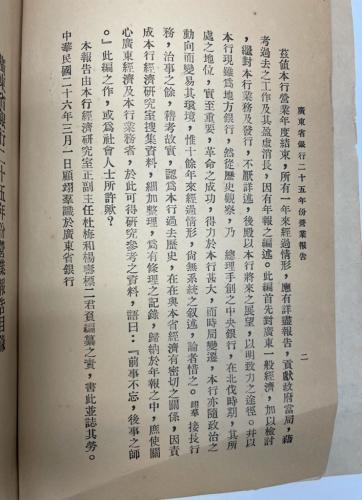 廣東省銀行二十五年份營業報告
二
茲値本行營業年度結束，所有一年來經過情形，應有詳盡報告，貢獻政府當局，藉
考過去之工作及其盈虛消長，因有年報之編述。此編首先對廣東一般經濟，加以檢討
，繼對本行業務及發行，不厭詳述，後殿以本行將來之展望，以明致力之途徑。幷以
本行現雖爲地方銀行，然從歷史觀察，乃　總理手創之中央銀行，在北伐時期，其所
處之地位，實至重要，革命之成功，得力於本行甚大，而時局變遷，本行亦隨政治之
動向而變易其環境，惟十餘年來經過情形，尙無系統之敘述，論者惜之。翊羣接長行
務，治事之餘，稽考故實，認爲本行過去歷史，在在與本省經濟有密切之關係，因責
成本行經濟研究室搜集資料，細加整理，爲有條理之記錄，歸納於年報之中，庶使關
心廣東經濟及本行業務者，於此可得研究參考之資料，語曰：『前事不忘，後事之師
。』此編之作，或爲社會人士所許歟？
本報告由本行經濟研究室正副主任杜梅和楊壽標二君負編纂之責，書此並誌其勞。
中華民國二十六年三月一日顧翊羣識於廣東省銀行